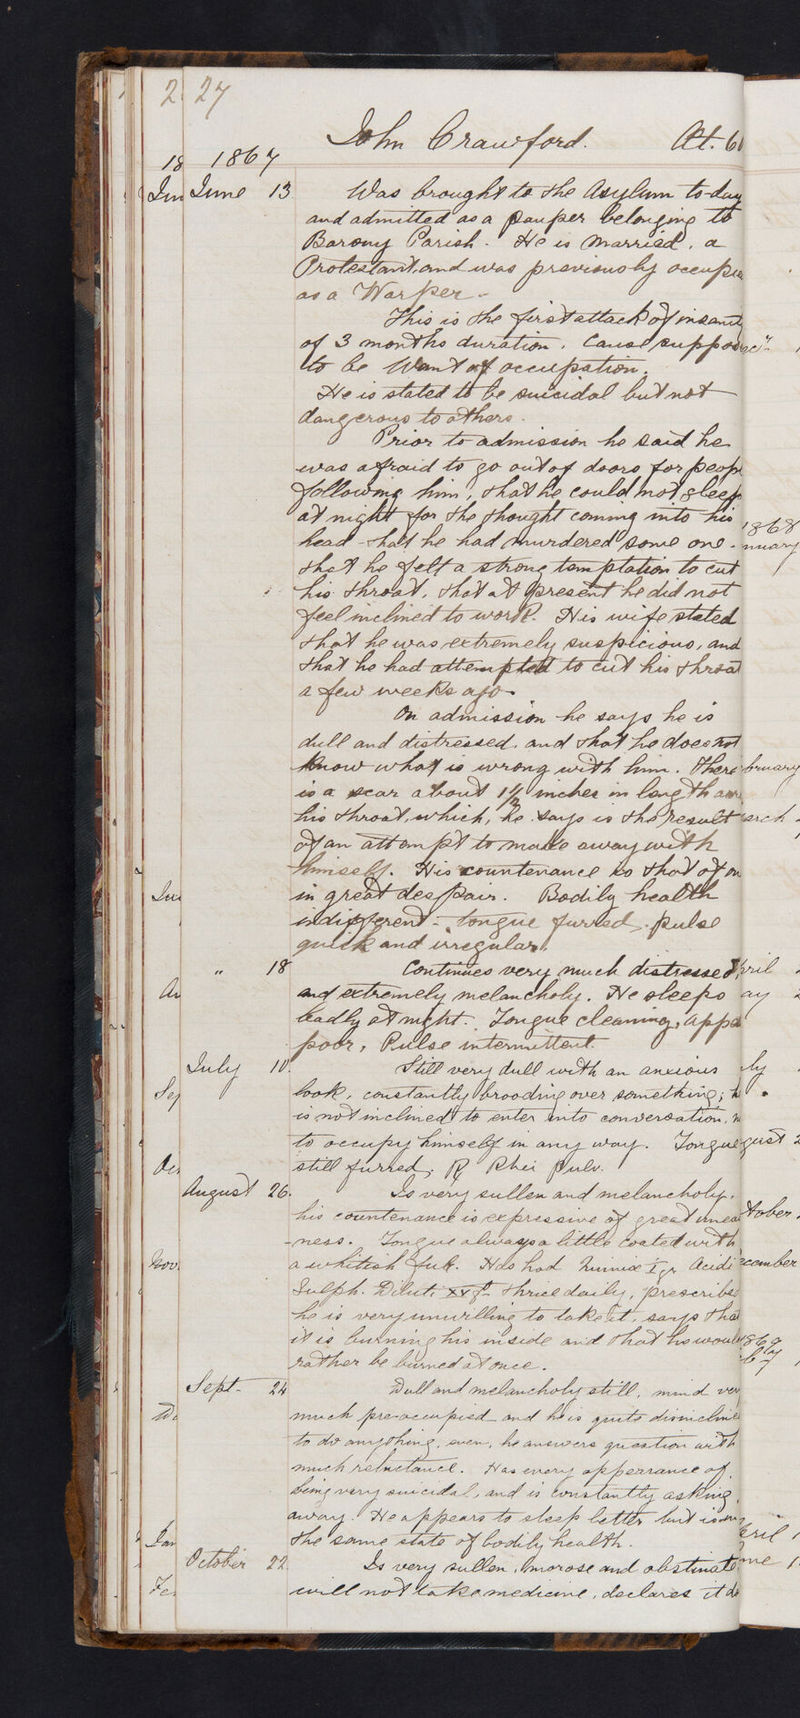 27
John Crawford. At. 60
1867
June 13 Was brought to the Asylum to-day
and admitted as a pauper belonging to
Barony Parish. He is Married, a
Protestant, and was previously occupie
as a Warper -
This is the first attack of insanity
of 3 months duration. Cause suppos
to be Want of occupation.
He is stated to be suicidal but not
dangerous to others.
Prior to admission he said he
was afraid to go out of doors for peop
following him, that he could not sleep
at night for the thought coming into his
head that he had murdered some one -
that he felt a strong temptation to cut
his throat, that at present he did not
feel inclined to work. His wife stated
that he was extremely suspicious, and
that he had attempted to cut his throat
a few weeks ago.
On admission he says he is
dull and distressed, and that he does not
know what is wrong with him. There
is a scar about 1½ inches in length
his throat, which, he says is the result
of an attempt to make away with
himself. His countenance is that of on
in great despair. Bodily health
indifferent - tongue furred, pulse
quick and irregular.
" 18 Continues very much distressed
and extremely melancholy. He sleeps
badly at night. Tongue cleaning, appe
poor, Pulse intermittent
July 10. Still very dull with an anxious
look, constantly brooding over something; h
is not inclined to enter into conversation, n
to occupy himself in any way. Tongue
still furred, ℞ Rhei Pulv.
August 26. Is very sullen and melancholy.
his countenance is expressive of great unea
-ness. Tongue always a little coated with
a whitish fur. Has had Quiniæ I gr Acidi
Sulph. Diluti xv thrice daily, prescribe
he is very unwilling to take it, says that
it is burning his inside and that he wou
rather be burned at once.
Sept- 24 Dull and melancholy still, mind ver
much pre-occupied and he is quite disincline
to do anything, even, he answers question with
much reluctance. Has every apperrance of
being very suicidal, and is constantly asking
away. He appears to sleep better but is in
the same state of bodily health.
October 22 Is very sullen, morose and obstinate
will not take medicine, declares it d